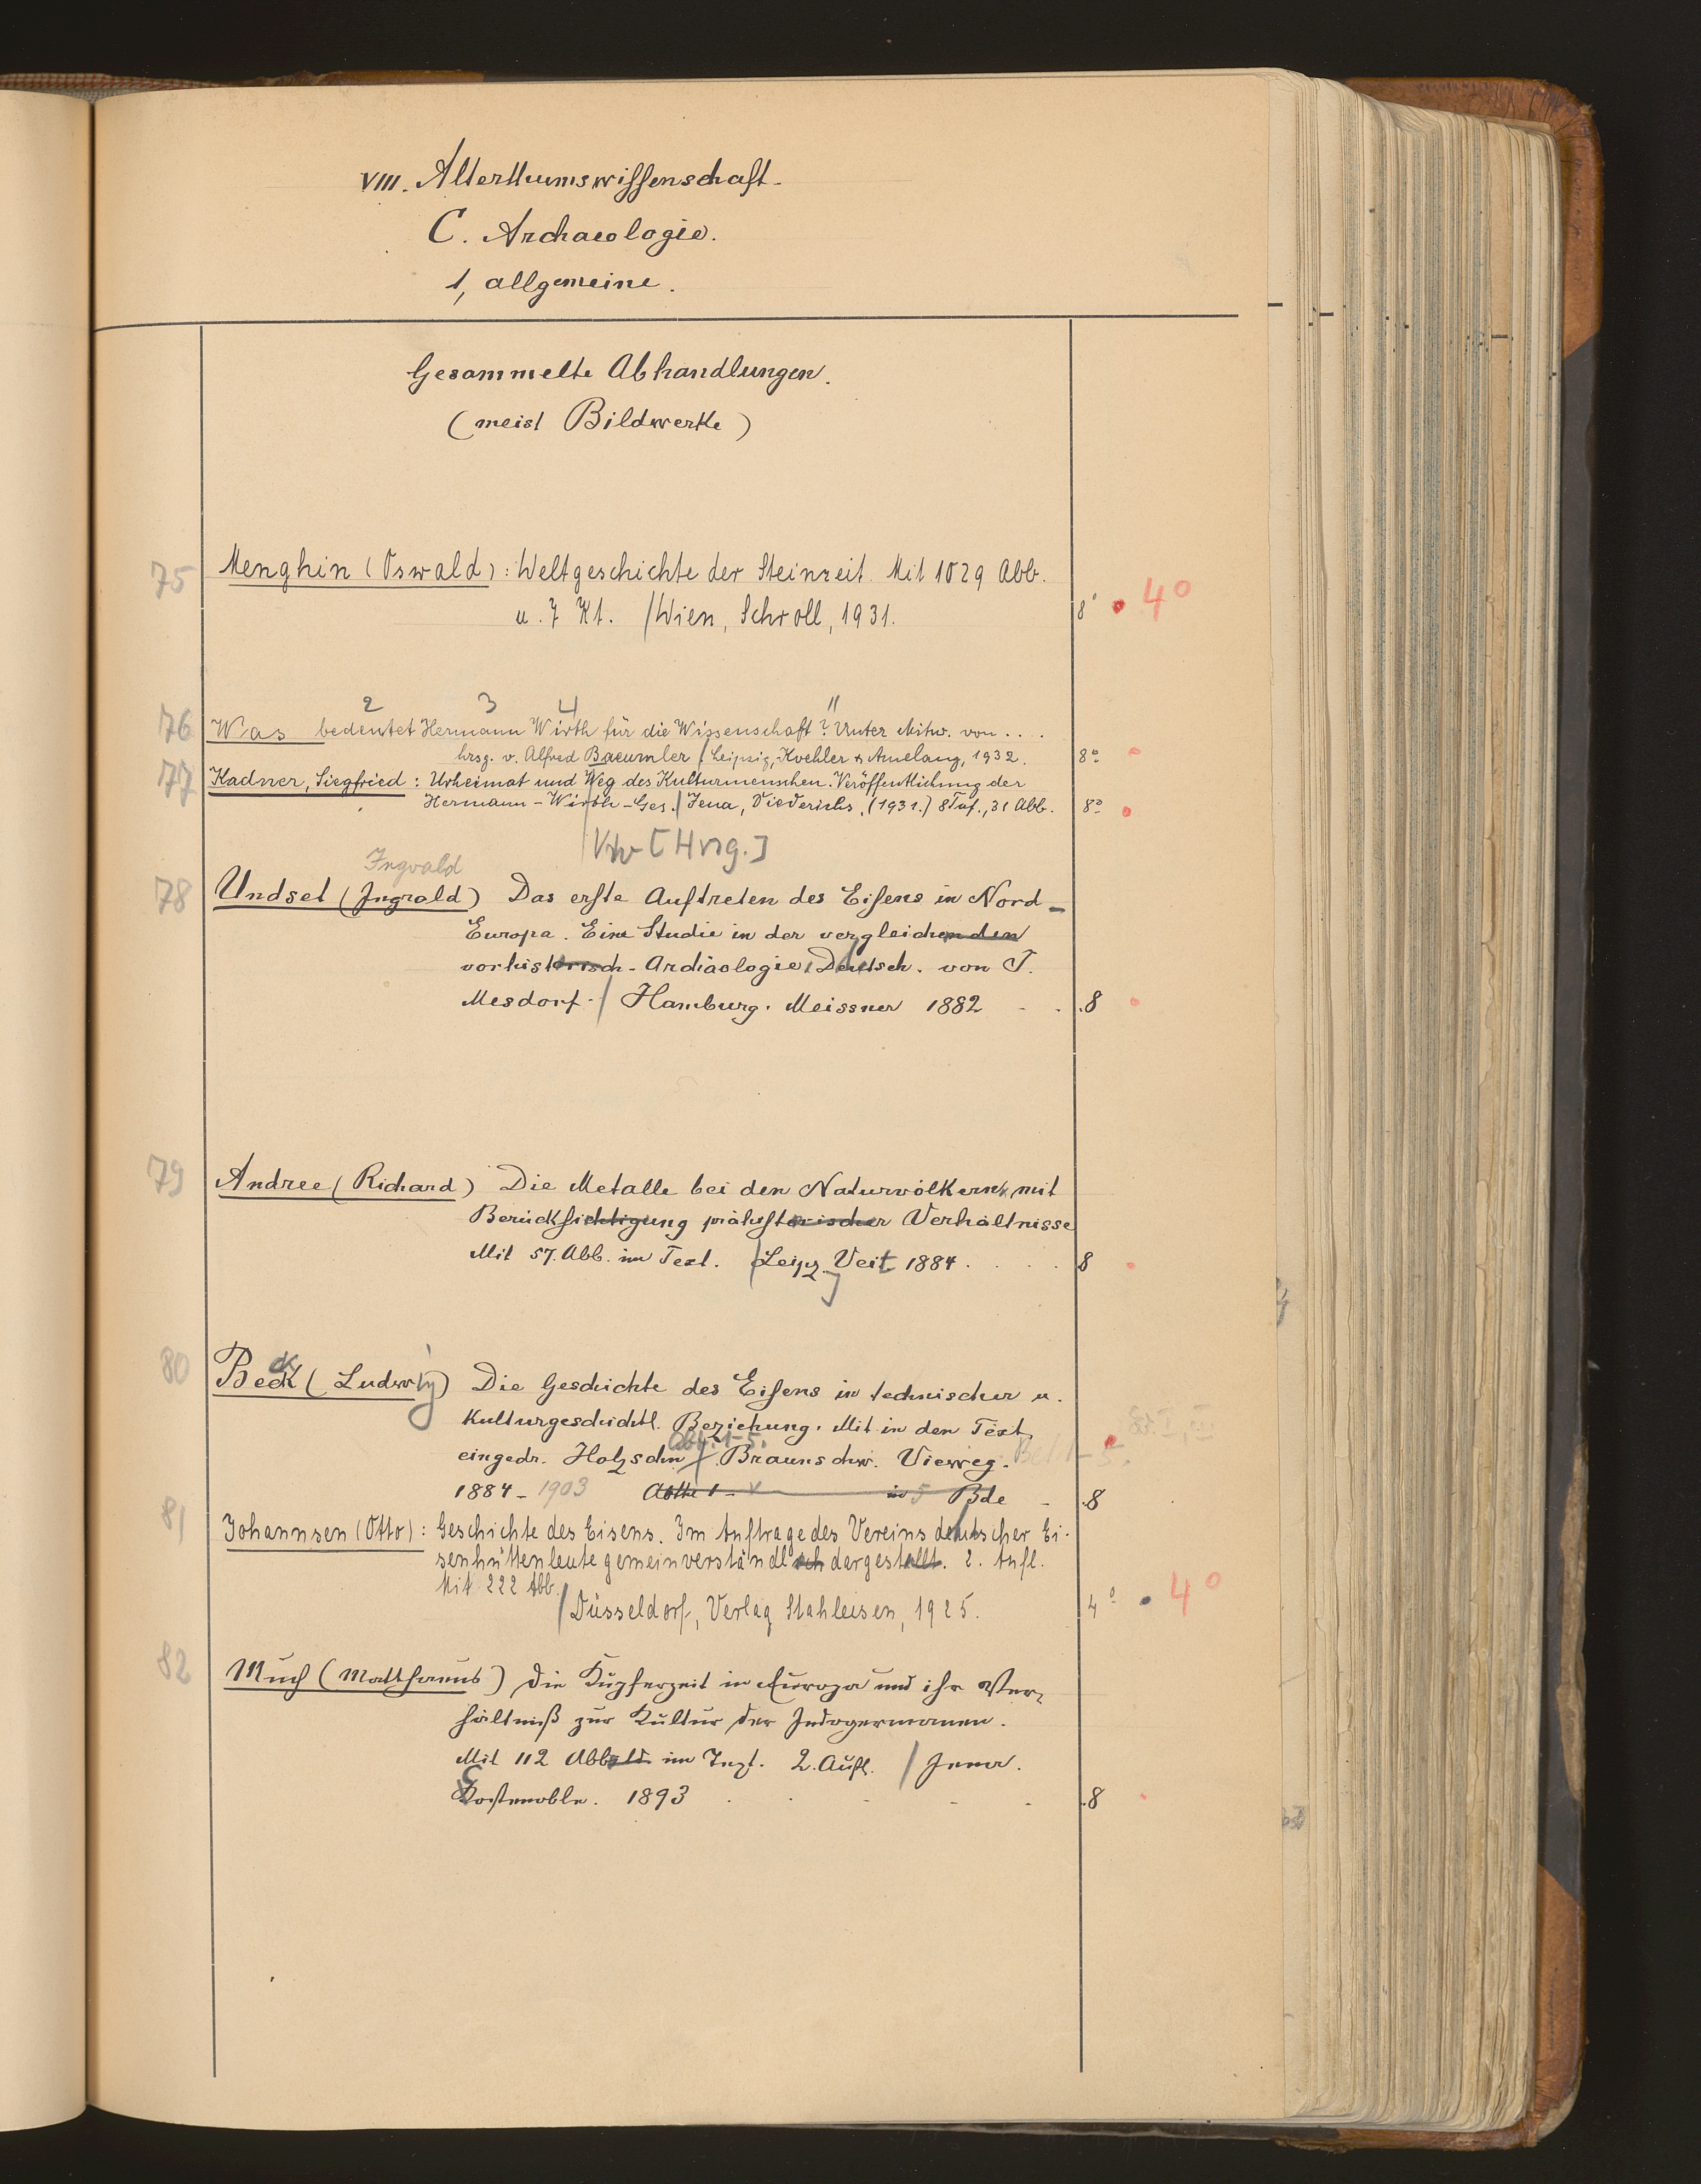 VIII. Alterthumswissenschaft.
C. Archaeologie.
1, allgemeine.
Gesammelte Abhandlungen.
(meist Bildwerke)
75 Menghin (Oswald): Weltgeschichte der Steinzeit. Mit 1029 Abb.
u. 7 Kt. / Wien, Schroll, 1931. 8° 4°
2 3 4 "
76 Was bedeutet Hermann Wirth für die Wissenschaft? Unter Mitw. von . . .
hrsg. v. Alfred Baeumler / Leipzig, Koehler & Amelang, 1932. 8°
77 Kadner, Siegfried: Urheimat und Weg des Kulturmenschen. Veröffentlichung der
Hermann-Wirth-Ges. / Jena, Diederichs, (1931.) 8 Taf., 31 Abb. 8°
[Hrsg.]
Ingvald
78 Undset (Ingvald) Das erste Auftreten des Eisens in Nord-
Europa. Eine Studie in der vergleichenden
vorhistorisch. Archäologie. Deutsch. von J.
Mesdorf. / Hamburg. Meissner 1882 8
79 Andree (Richard) Die Metalle bei den Naturvölkern, mit
Berücksichtigung prähistorischer Verhältnisse
Mit 57. Abb. im Text. / Leipz. Veit 1884. 8
80 Beck (Ludwig) Die Geschichte des Eisens in technischer u.
Kulturgeschichtl. Beziehung. Mit in den Text
Abt. 1-5.
eingedr. Holzschn. / Braunschw. Vieweg.
1884-1903 Abthe 1 - V in 5 Bde 8
81 Johannsen (Otto): Geschichte des Eisens. Im Auftrage des Vereins deutscher Ei-
senhüttenleute gemeinverständlich dargestellt. 2. Aufl.
Mit 222 Abb.
/ Düsseldorf, Verlag Stahleisen, 1925. 4° 4°
82 Much (Matthaeus) Die Kupferzeit in Europa und ihr Ver-
hältniß zur Kultur der Indogermanen.
Mit 112 Abbild. im Text. 2. Aufl. / Jena.
Costenoble. 1893 8